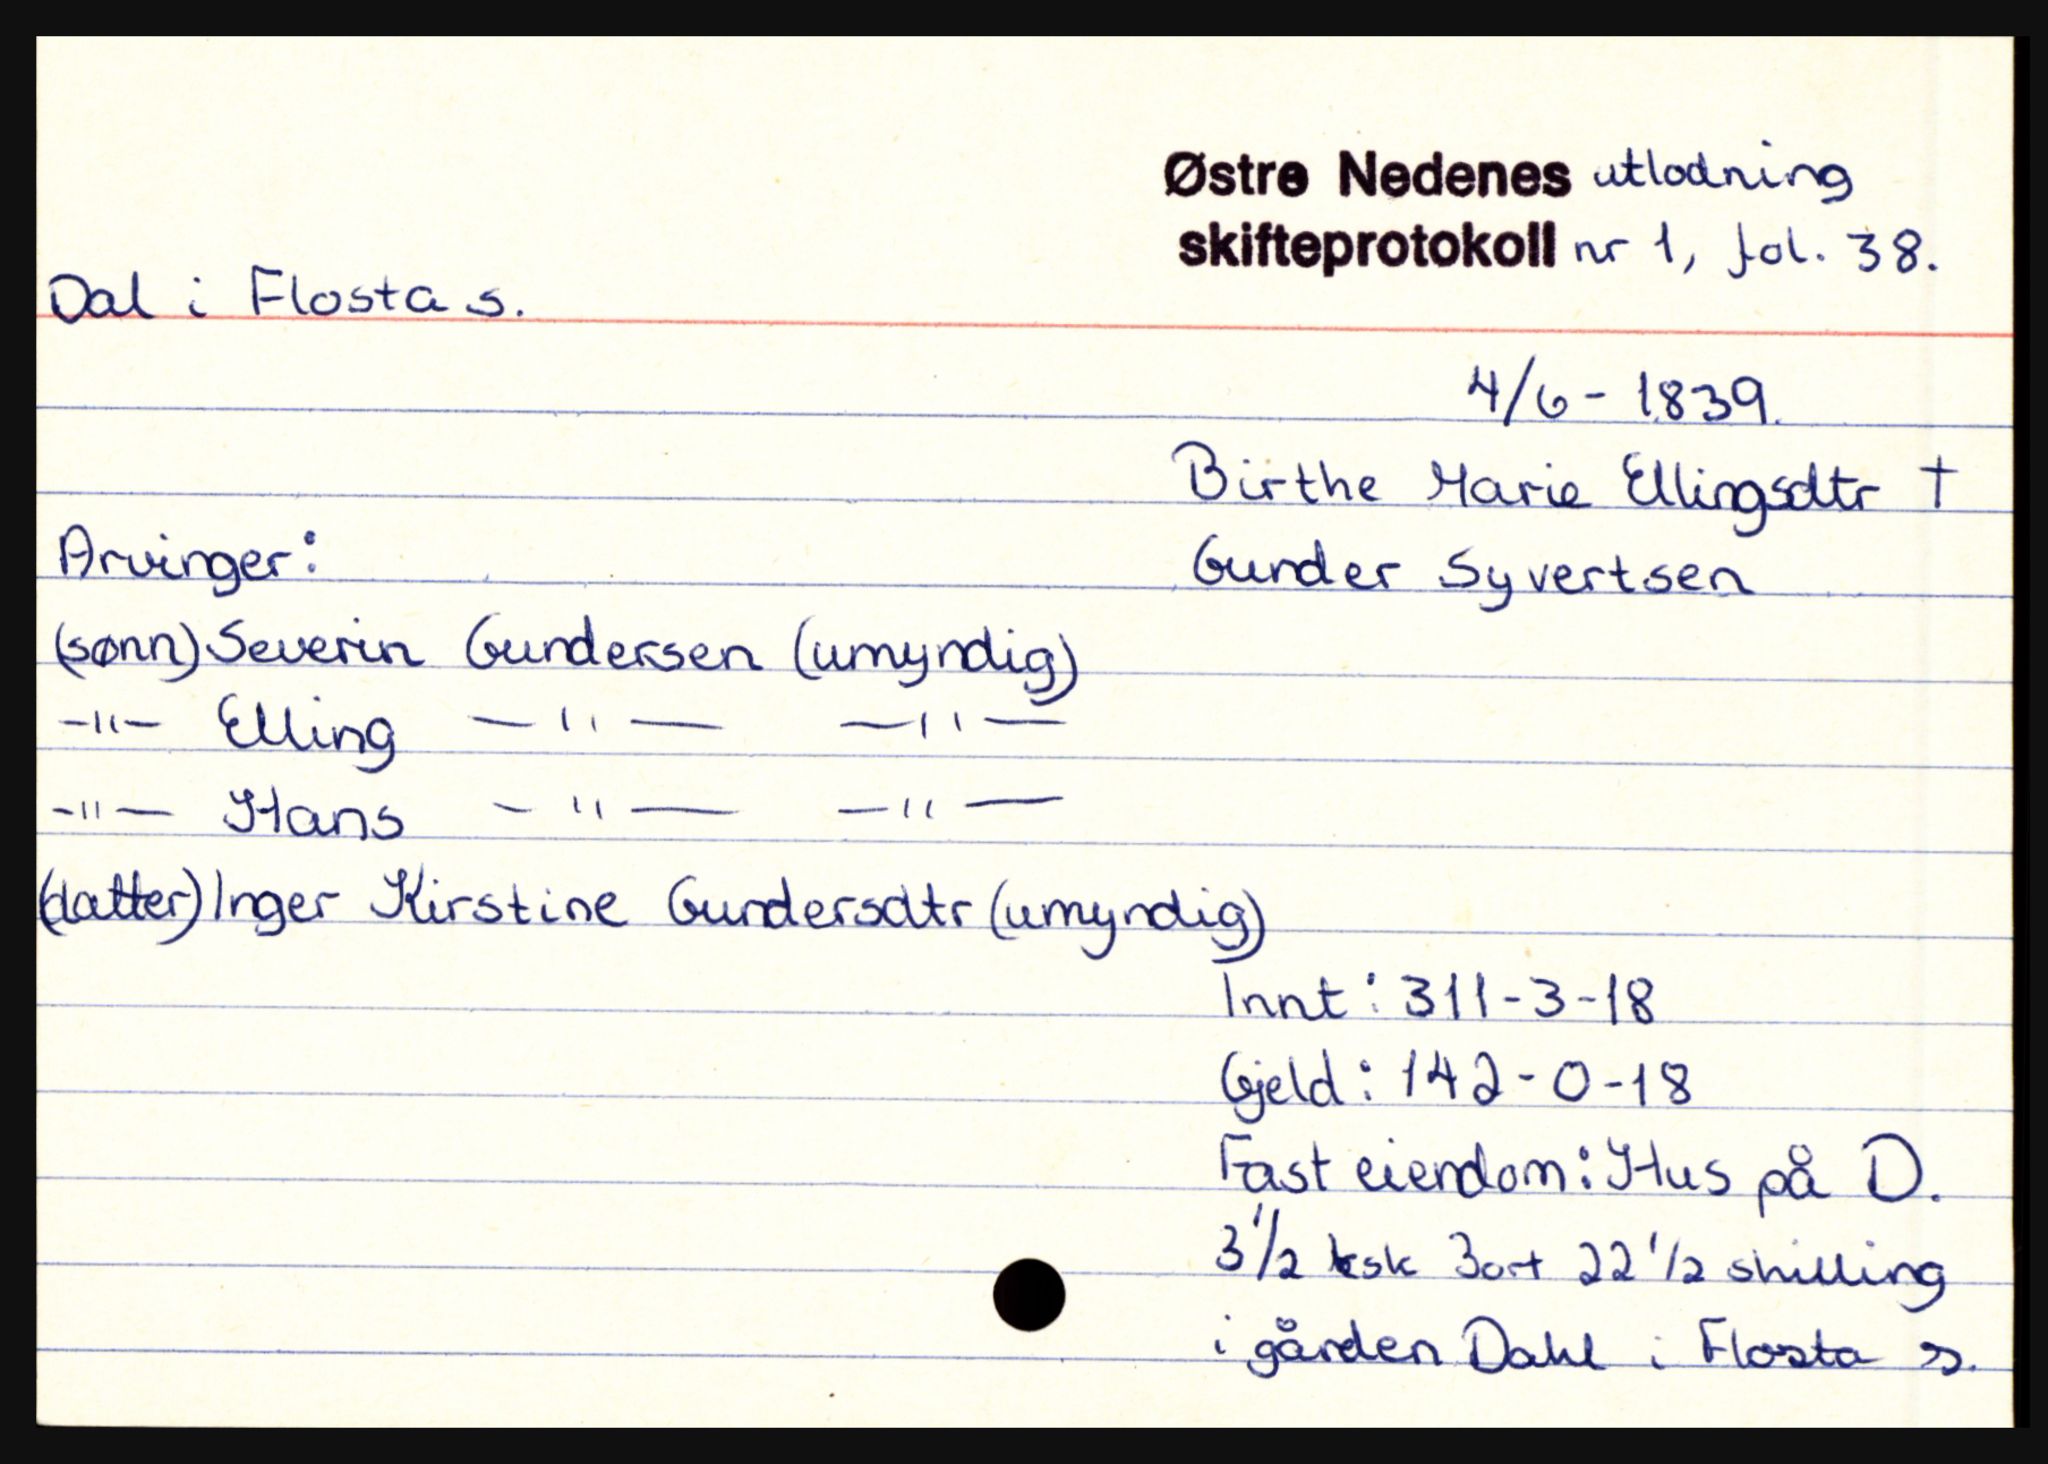 Østre Nedenes utlodning
skifteprotokoll nr 1, fol. 38.
Dal i Flosta s.
4/6 - 1839.
Birthe Marie Ellingsdtr †
Arvinger:
Gunder Syvertsen
(sønn) Severin Gundersen (umyndig)
-"- Elling -"- -"-
-"- Hans -"- -"-
(datter) Inger Kirstine Gundersdtr (umyndig)
Innt: 311-3-18
Gjeld: 142-0-18
Fast eiendom: Hus på D.
3 1/2 ksk 3 ort 22 1/2 skilling
i gården Dahl i Flosta s.